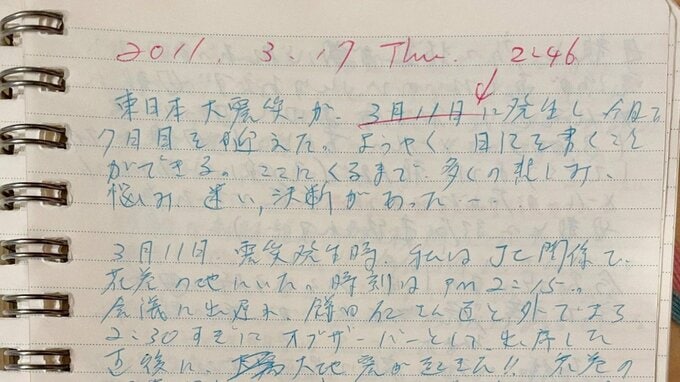 2011. 3. 17 Thu. 2:46
東日本大震災が、3月11日に発生し今日で
7日目を迎えた。ようやく、日記を書くこと
ができる。ここにくるまで、多くの悲しみ、
悩み、迷い、決断があった…。
3月11日 震災発生時、私はJC関係で、
花巻の地にいた。時刻はPM2:15。
会議に出遅れ、鎌田仁さん達と外でまち
2:30すぎにオブザーバーとして出席した
直後に、大地震が起きた!! 花巻の